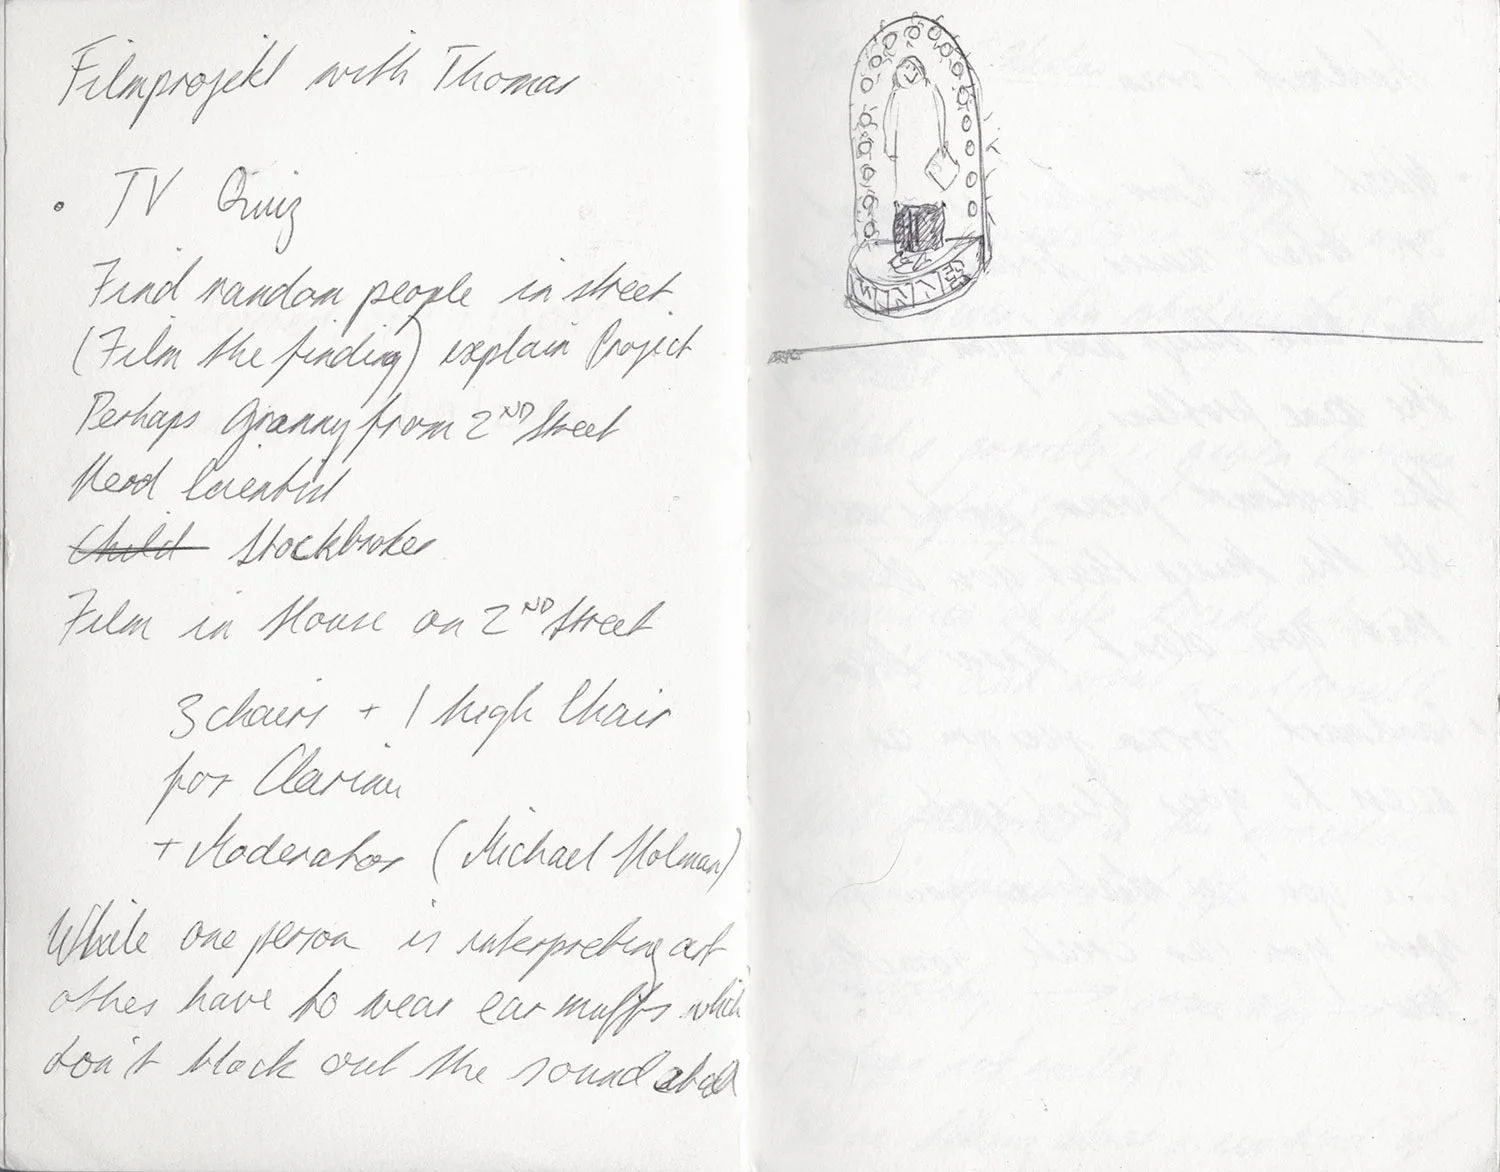 Filmprojekt with Thomas
• TV Quiz
Find random people in street
(Film the finding) explain Project
Perhaps Granny from 2ND Street
Nerd Scientist
Child Stockbroker
Film in House on 2ND Street
3 chairs + 1 high Chair
for Clarina
+ Moderator (Michael Holman)
While one person is interpreting art
others have to wear ear muffs which
don't block out the sound at all